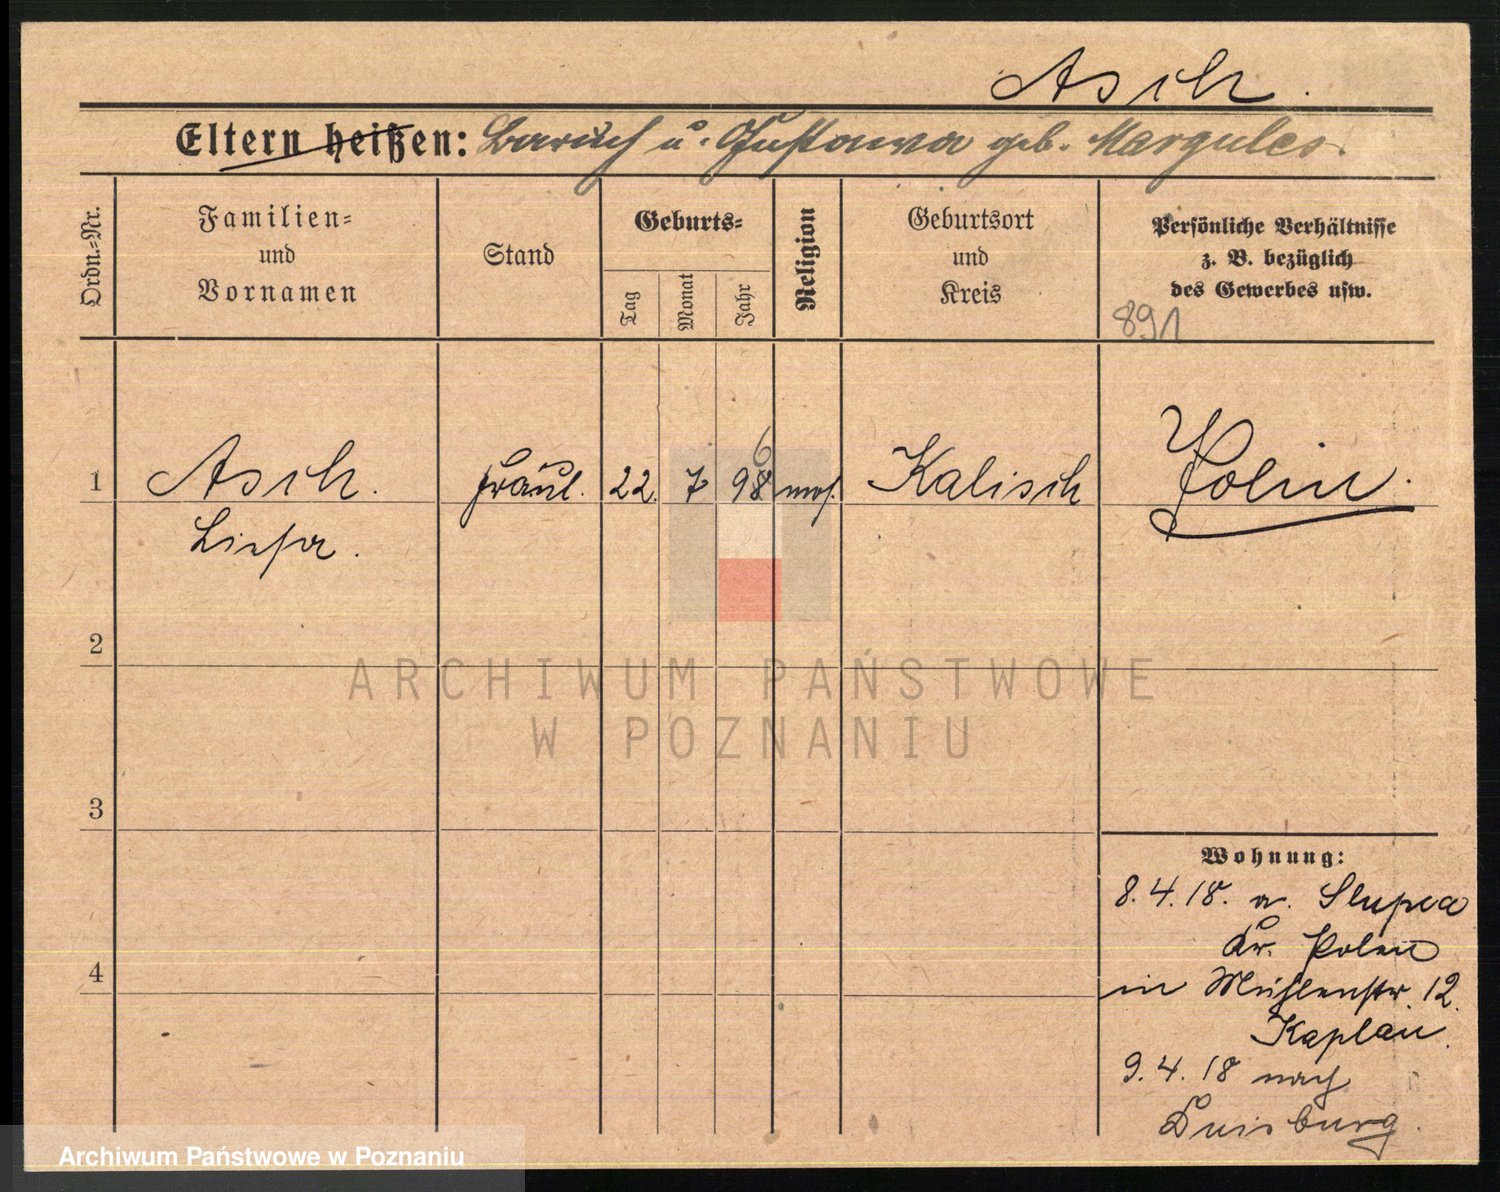 Asch.
Eltern heißen: Baruch u. Gustawa geb. Margules.
Ordn.=Nr.
Familien=
und
Vornamen
Stand
Geburts=
Tag
Monat
Jahr
Religion
Geburtsort
und
Kreis
Persönliche Verhältnisse
z. B. bezüglich
des Gewerbes usw.
891
6
1 Asch. Fräul. 22. 7 98 mos. Kalisch Polin.
Liesa.
2
3
4
Wohnung:
8.4.18. a. Slupca
Kr. Polen
in Mühlenstr. 12.
Kaplan.
9.4.18 nach
Duisburg.
ARCHIWUM PAŃSTWOWE
W POZNANIU
Archiwum Państwowe w Poznaniu